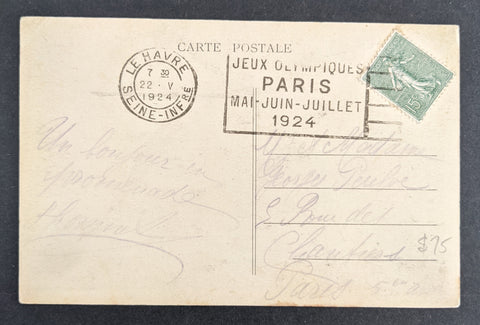 CARTE POSTALE
LE HAVRE
7 30
22 - V
1924
SEINE-INFRE
JEUX OLYMPIQUES
PARIS
MAI-JUIN-JUILLET
1924
15c
Un bonjour en
promenade
M et Madame
5 Rue des
Chantiers
$75
Paris 5eme